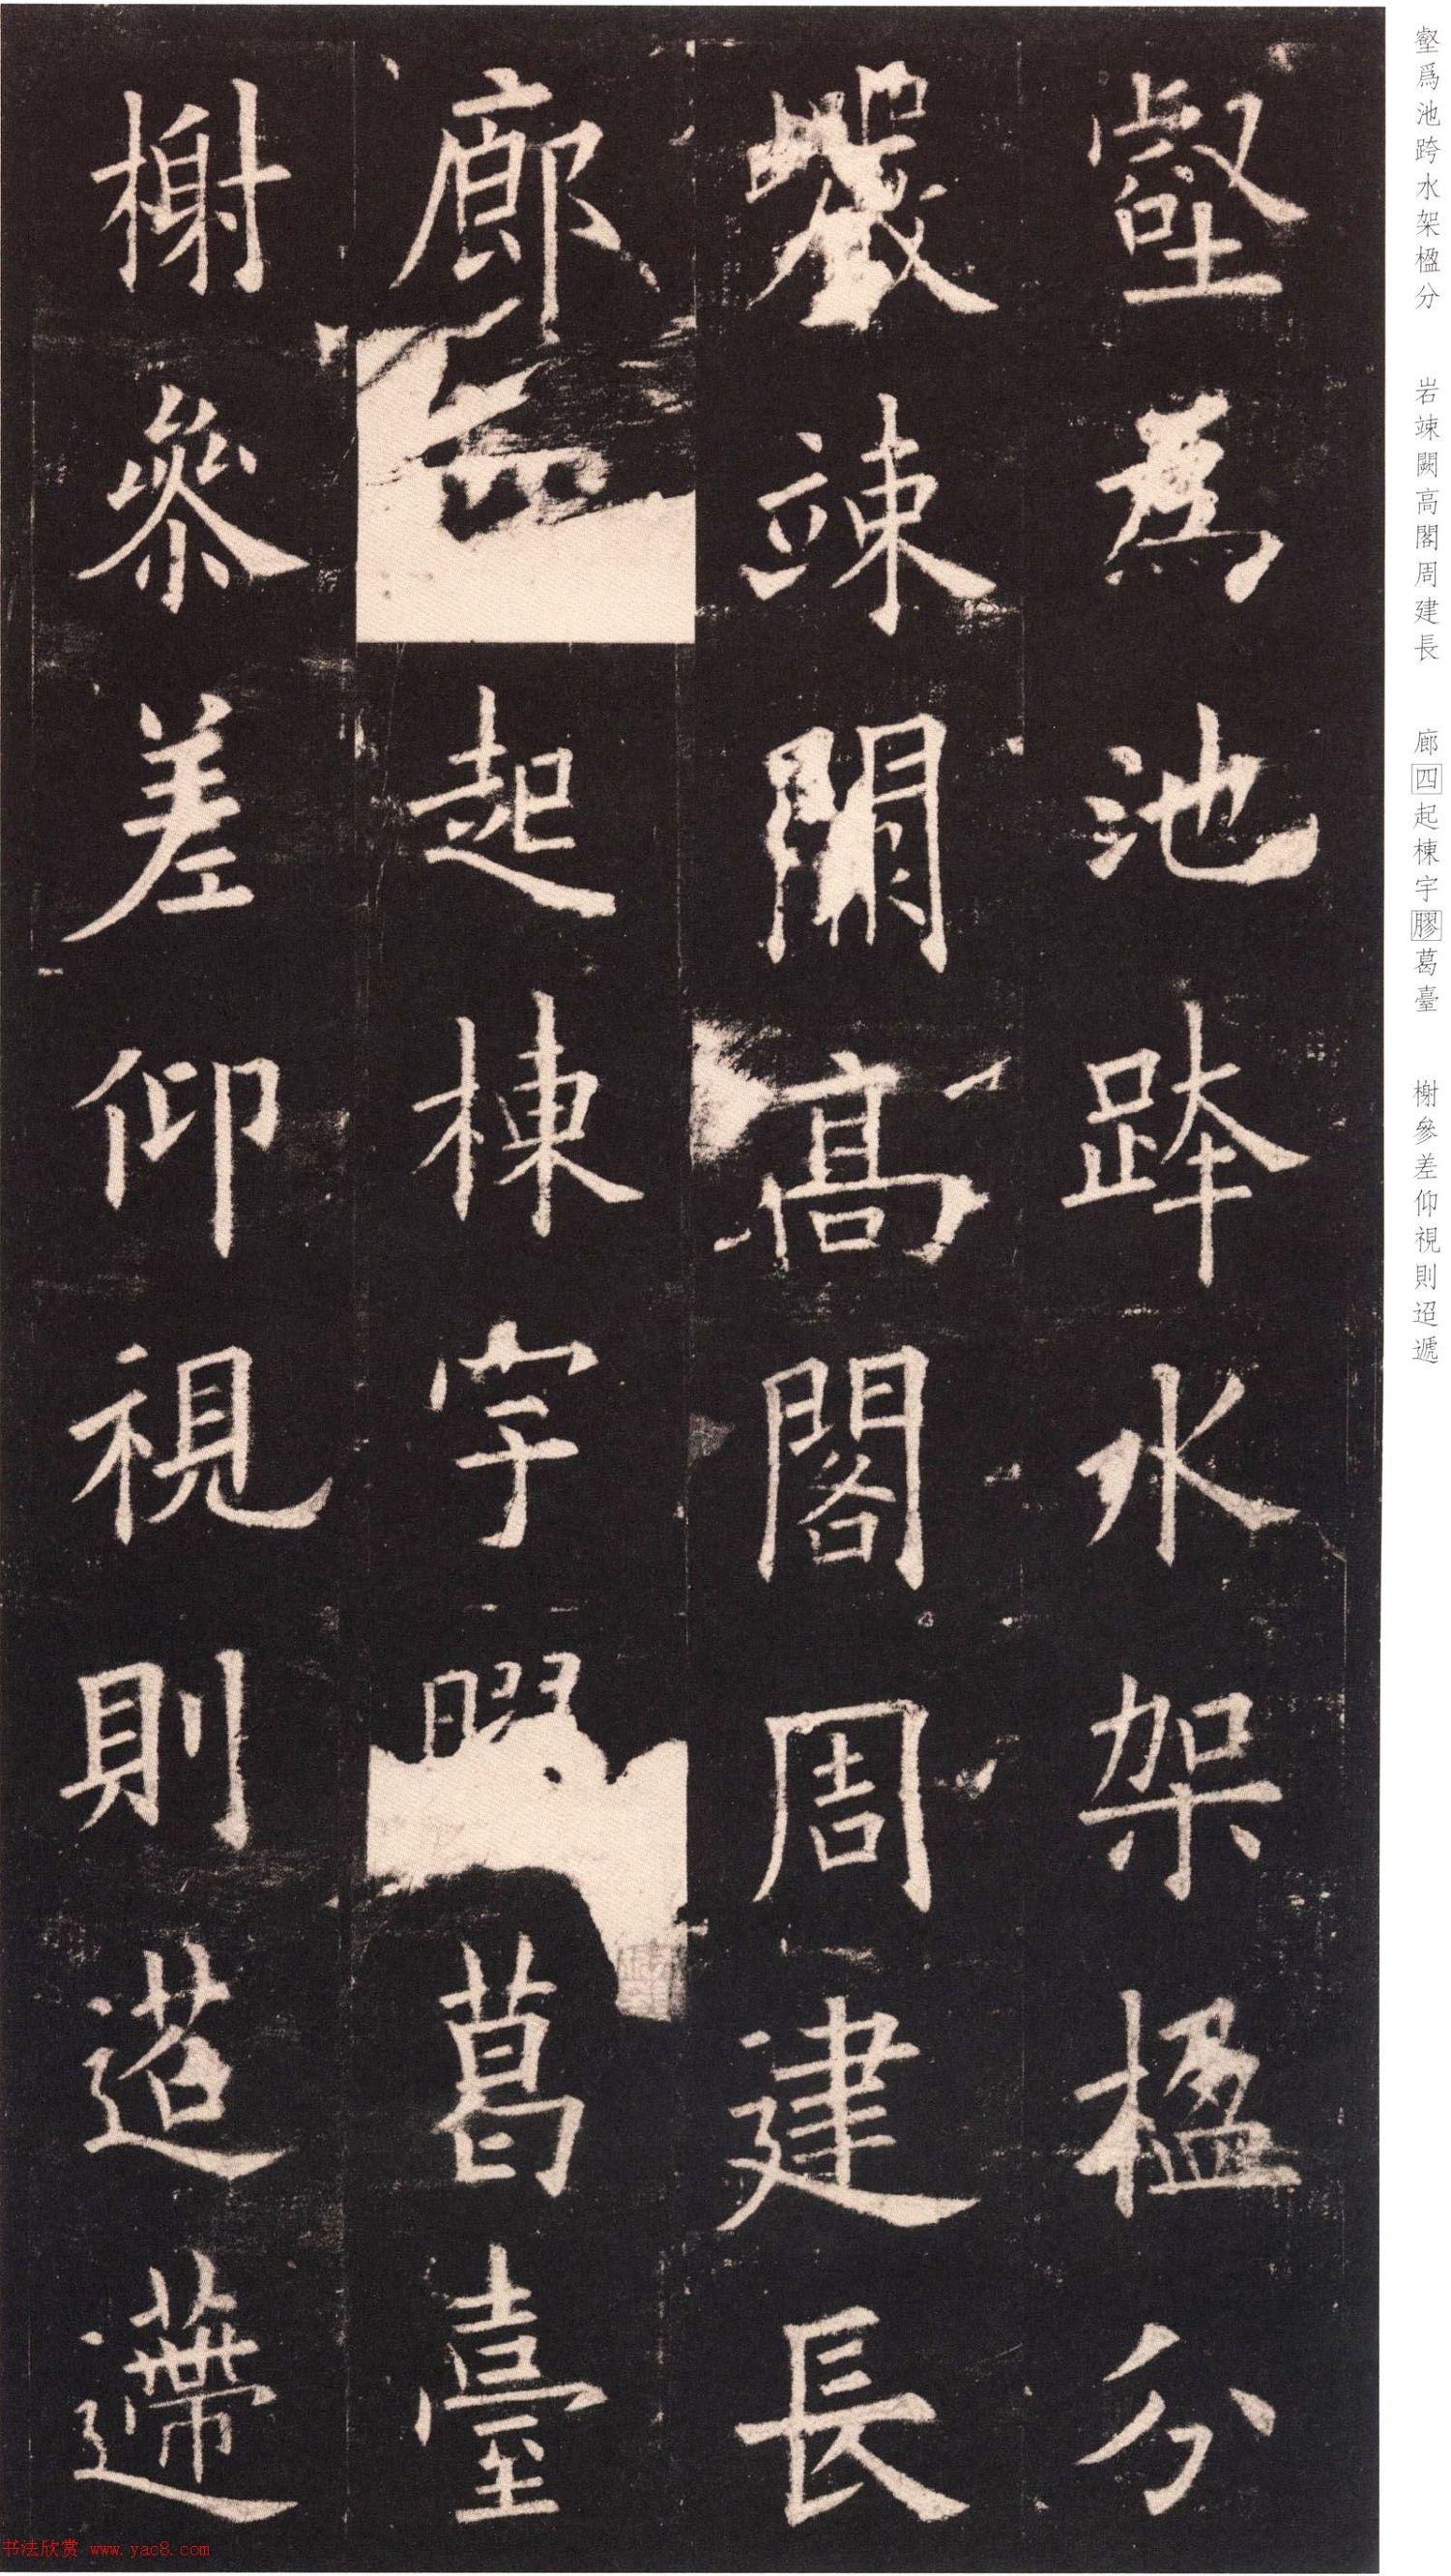 壑爲池跨水架楹分　岩竦闕高閣周建長　廊四起棟宇膠葛臺　榭參差仰視則迢遞
壑爲池跨水架楹分
巖竦闕高閣周建長
廊起棟宇葛臺
榭參差仰視則迢遰
书法欣赏 www.yac8.com